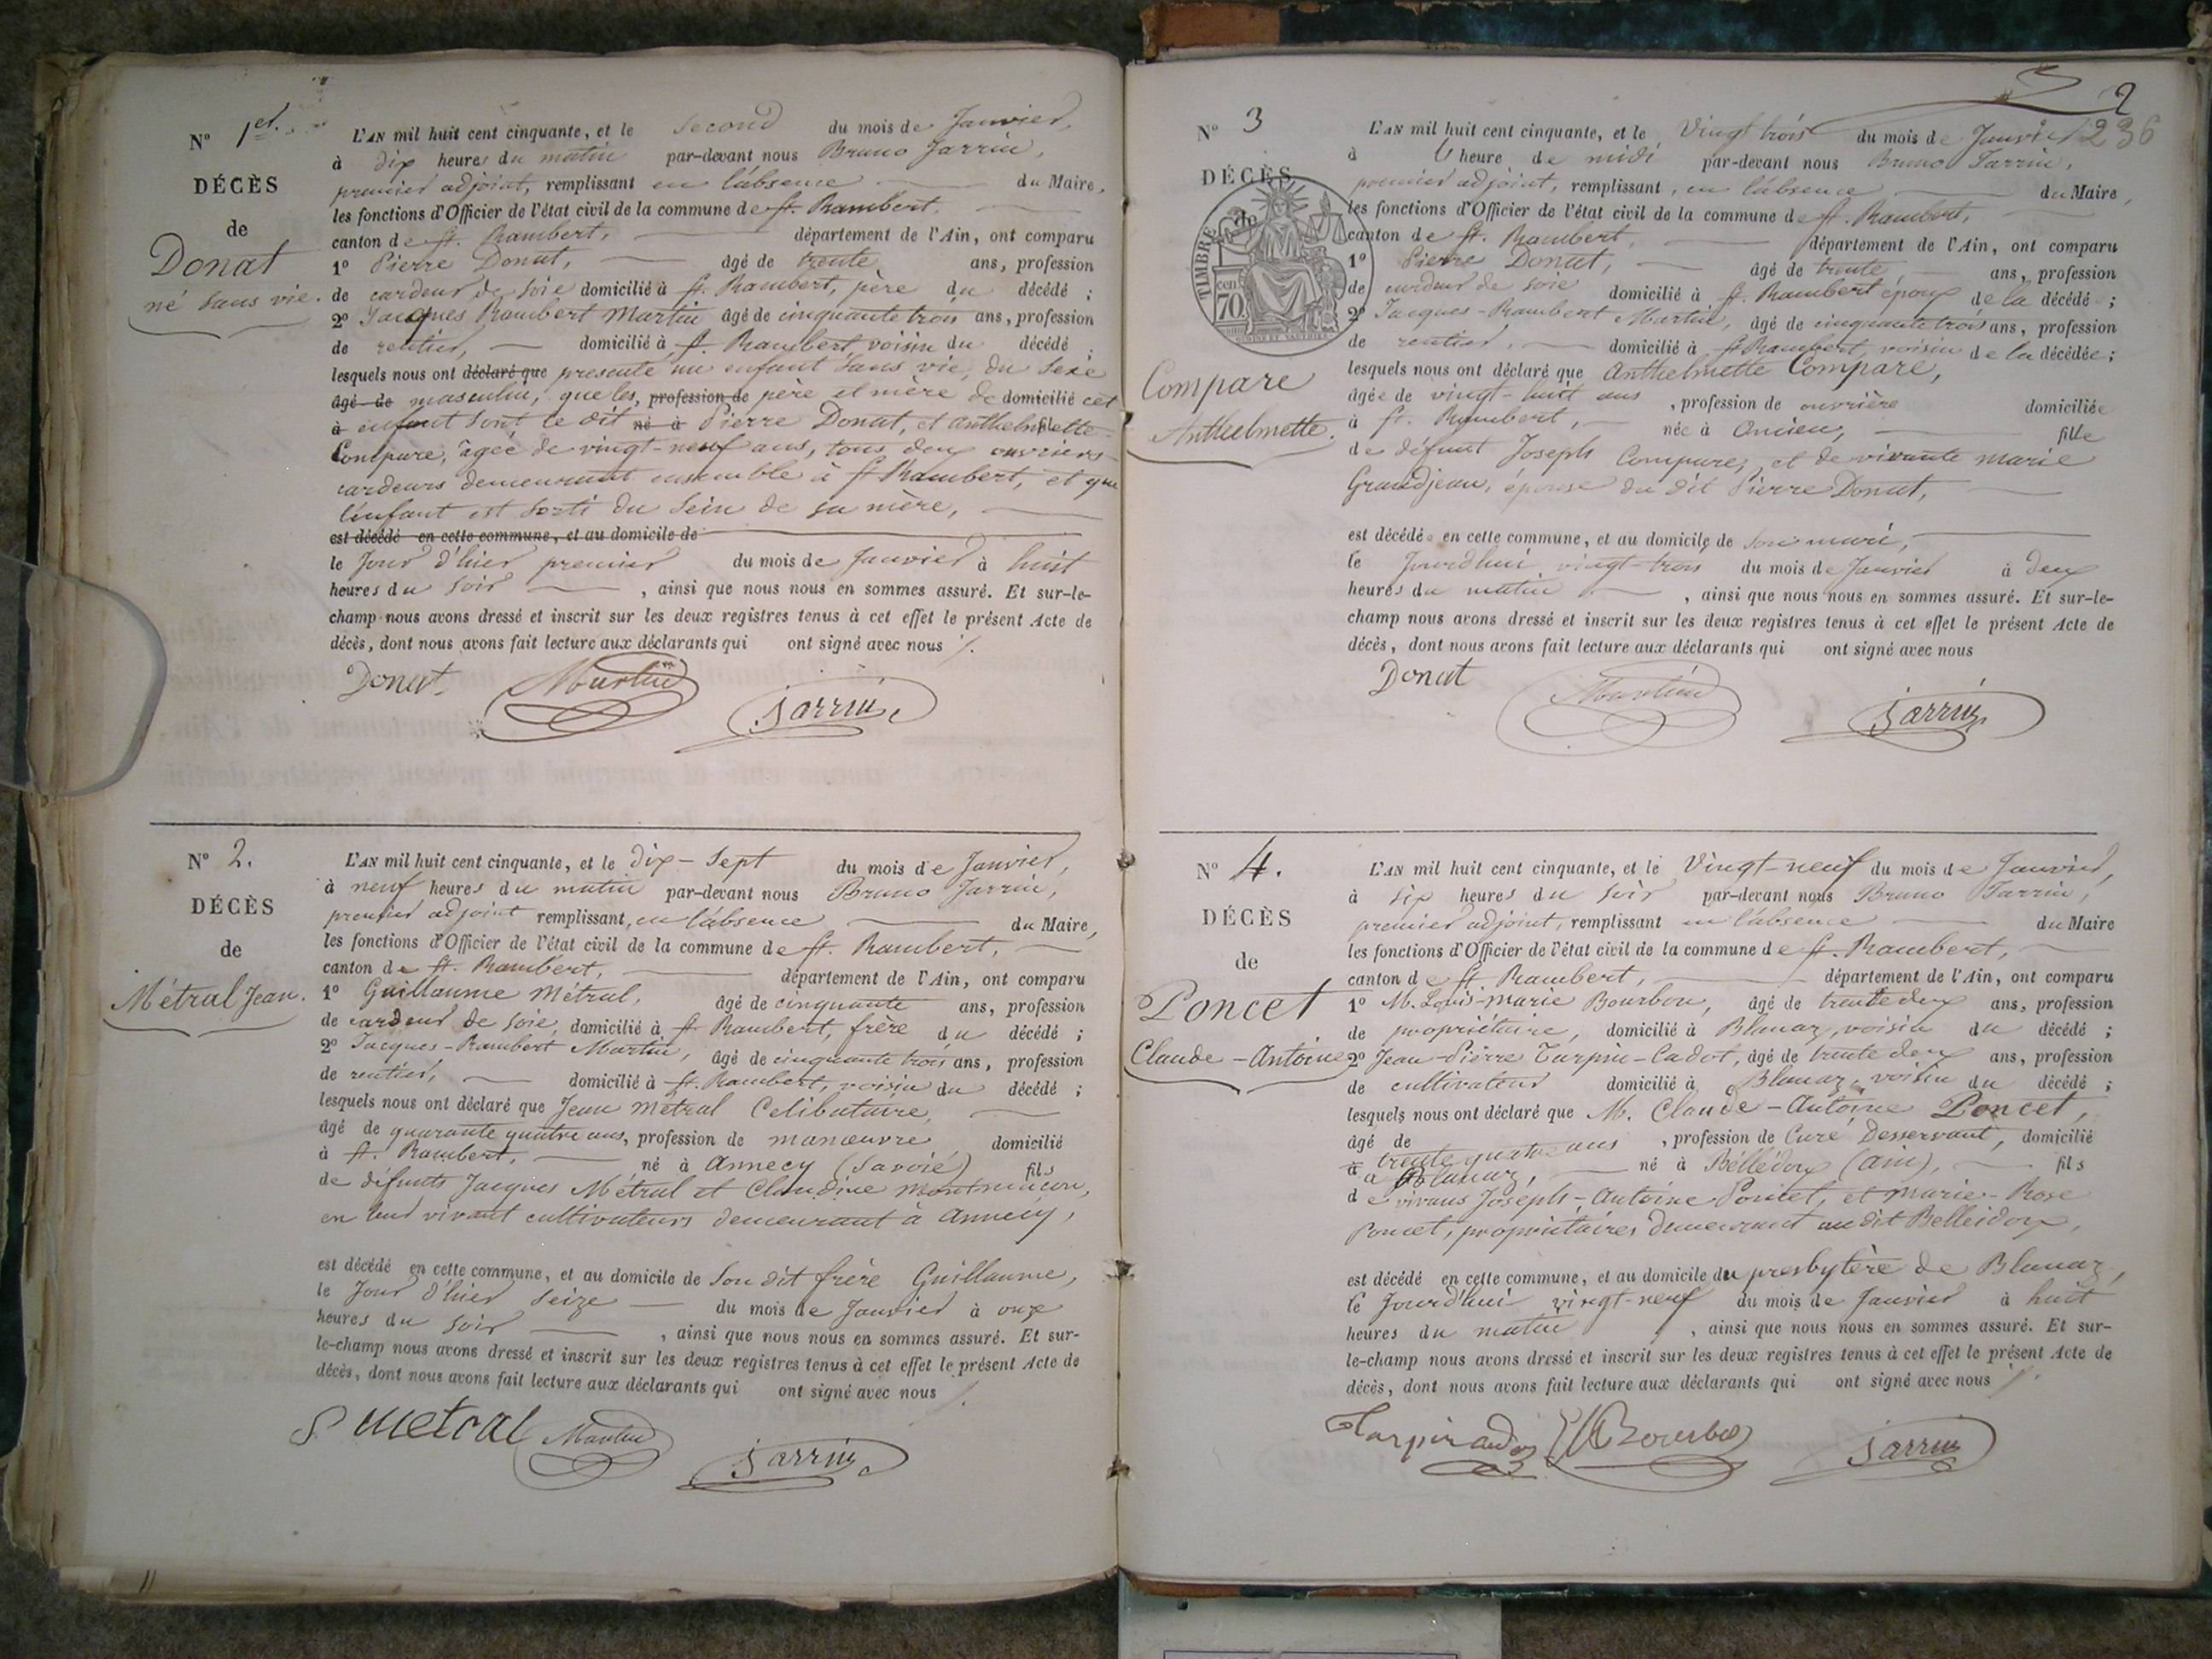 N° 1er.
DÉCÈS
de
Donat
né sans vie.
L'AN mil huit cent cinquante, et le second du mois de Janvier,
à dix heures du matin par-devant nous Bruno Jarrin,
premier adjoint, remplissant en l'absence du Maire,
les fonctions d'Officier de l'état civil de la commune de St. Rambert.
canton de St. Rambert, département de l'Ain, ont comparu
1° Pierre Donat, âgé de trente ans, profession
de cardeur de soie domicilié à St. Rambert, père du décédé ;
2° Jacques Rambert Martin âgé de cinquante trois ans, profession
de rentier, domicilié à St. Rambert, voisin du décédé ;
lesquels nous ont déclaré que presenté un enfant sans vie, du sexe
âgé de masculin, que les, profession de père et mère de domicilié cet
à enfant sont le dit né à Pierre Donat, et Anthelmette fils
Compare, âgée de vingt-neuf ans, tous deux ouvriers
cardeurs demeurant ensemble à St Rambert, et que
l'enfant est sorti du sein de sa mère,
est décédé en cette commune, et au domicile de
le Jour d'hier premier du mois de Janvier à huit
heures du soir, ainsi que nous nous en sommes assuré. Et sur-le-
champ nous avons dressé et inscrit sur les deux registres tenus à cet effet le présent Acte de
décès, dont nous avons fait lecture aux déclarants qui ont signé avec nous
Donat Martin Jarrin
N° 2.
DÉCÈS
de
Métral Jean.
L'AN mil huit cent cinquante, et le dix-sept du mois de Janvier,
à neuf heures du matin par-devant nous Bruno Jarrin,
premier adjoint remplissant, en l'absence du Maire,
les fonctions d'Officier de l'état civil de la commune de St. Rambert,
canton de St. Rambert, département de l'Ain, ont comparu
1° Guillaume Métral, âgé de cinquante ans, profession
de cardeur de soie, domicilié à St Rambert, frère du décédé ;
2° Jacques-Rambert Martin, âgé de cinquante trois ans, profession
de rentier, domicilié à St. Rambert, voisin du décédé ;
lesquels nous ont déclaré que Jean Métral Celibataire,
âgé de quarante quatre ans, profession de manœuvre domicilié
à St. Rambert, né à Annecy (Savoie) fils
de défunts Jacques Métral et Claudine Montmucon,
en leur vivant cultivateurs demeurant à Annecy,
est décédé en cette commune, et au domicile de son dit frère Guillaume,
le Jour d'hier seize du mois de Janvier à onze
heures du soir, ainsi que nous nous en sommes assuré. Et sur-
le-champ nous avons dressé et inscrit sur les deux registres tenus à cet effet le présent Acte de
décès, dont nous avons fait lecture aux déclarants qui ont signé avec nous
Metral Martin Jarrin
2
236
N° 3
DÉCÈS
de
TIMBRE
cen 70
Compare
Anthelmette.
L'AN mil huit cent cinquante, et le Vingt trois du mois de Janvier
à heure de midi par-devant nous Bruno Jarrin,
premier adjoint, remplissant, en l'absence du Maire,
les fonctions d'Officier de l'état civil de la commune de St. Rambert,
canton de St. Rambert, département de l'Ain, ont comparu
1° Pierre Donat, âgé de trente, ans, profession
de cardeur de soie domicilié à St. Rambert époux de la décédé ;
2° Jacques-Rambert Martin, âgé de cinquante trois ans, profession
de rentier, domicilié à St Rambert, voisin de la décédée ;
lesquels nous ont déclaré que Anthelmette Compare,
âgée de vingt-huit ans, profession de ouvrière domiciliée
à St. Rambert, née à Oncieu, fille
de défunt Joseph Compare, et de vivante Marie
Grandjean, épouse du dit Pierre Donat,
est décédée en cette commune, et au domicile de son mari,
le Jourdhui vingt-trois du mois de Janvier à deux
heures du matin, ainsi que nous nous en sommes assuré. Et sur-le-
champ nous avons dressé et inscrit sur les deux registres tenus à cet effet le présent Acte de
décès, dont nous avons fait lecture aux déclarants qui ont signé avec nous
Donat Martin Jarrin
N° 4.
DÉCÈS
de
Poncet
Claude-Antoine
L'AN mil huit cent cinquante, et le Vingt-neuf du mois de Janvier,
à six heures du soir par-devant nous Bruno Jarrin,
premier adjoint, remplissant en l'absence du Maire
les fonctions d'Officier de l'état civil de la commune de St. Rambert,
canton de St. Rambert, département de l'Ain, ont comparu
1° M. Louis-Marie Bourbon, âgé de trente deux ans, profession
de propriétaire, domicilié à Blanaz, voisin du décédé ;
2° Jean-Pierre Turpin-Cadot, âgé de trente deux ans, profession
de cultivateur domicilié à Blanaz, voisin du décédé ;
lesquels nous ont déclaré que M. Claude-Antoine Poncet,
âgé de trente quatre ans, profession de Curé Desservant, domicilié
à à Blanaz, né à Béllédoux (Ain), fils
de vivans Joseph-Antoine Poncet, et Marie-Rose
Poncet, propriétaires demeurant au dit Belleidoux,
est décédé en cette commune, et au domicile du presbytère de Blanaz,
le Jourd'hui vingt-neuf du mois de Janvier à huit
heures du matin, ainsi que nous nous en sommes assuré. Et sur-
le-champ nous avons dressé et inscrit sur les deux registres tenus à cet effet le présent Acte de
décès, dont nous avons fait lecture aux déclarants qui ont signé avec nous
Bourbon Jarrin